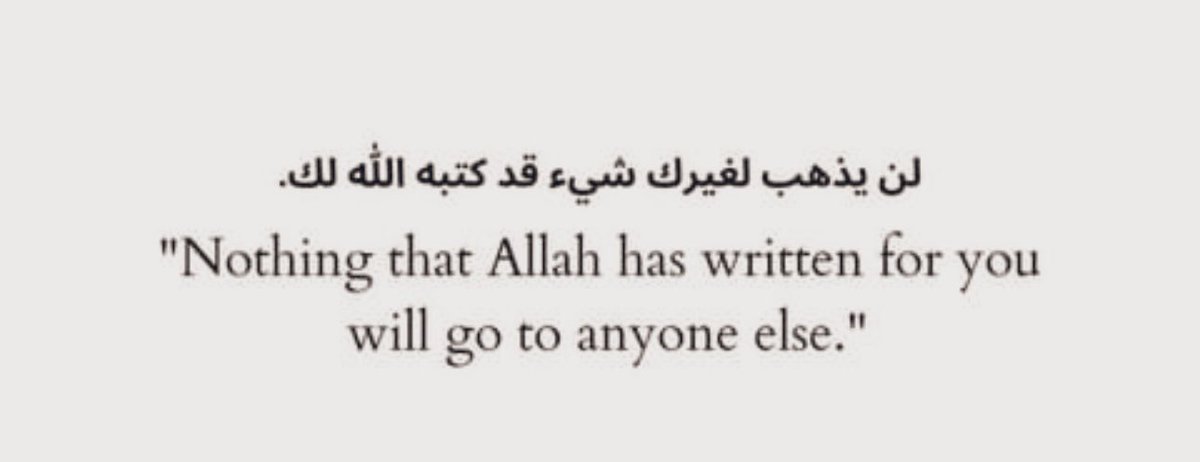 لن يذهب لغيرك شيء قد كتبه الله لك.
"Nothing that Allah has written for you
will go to anyone else."